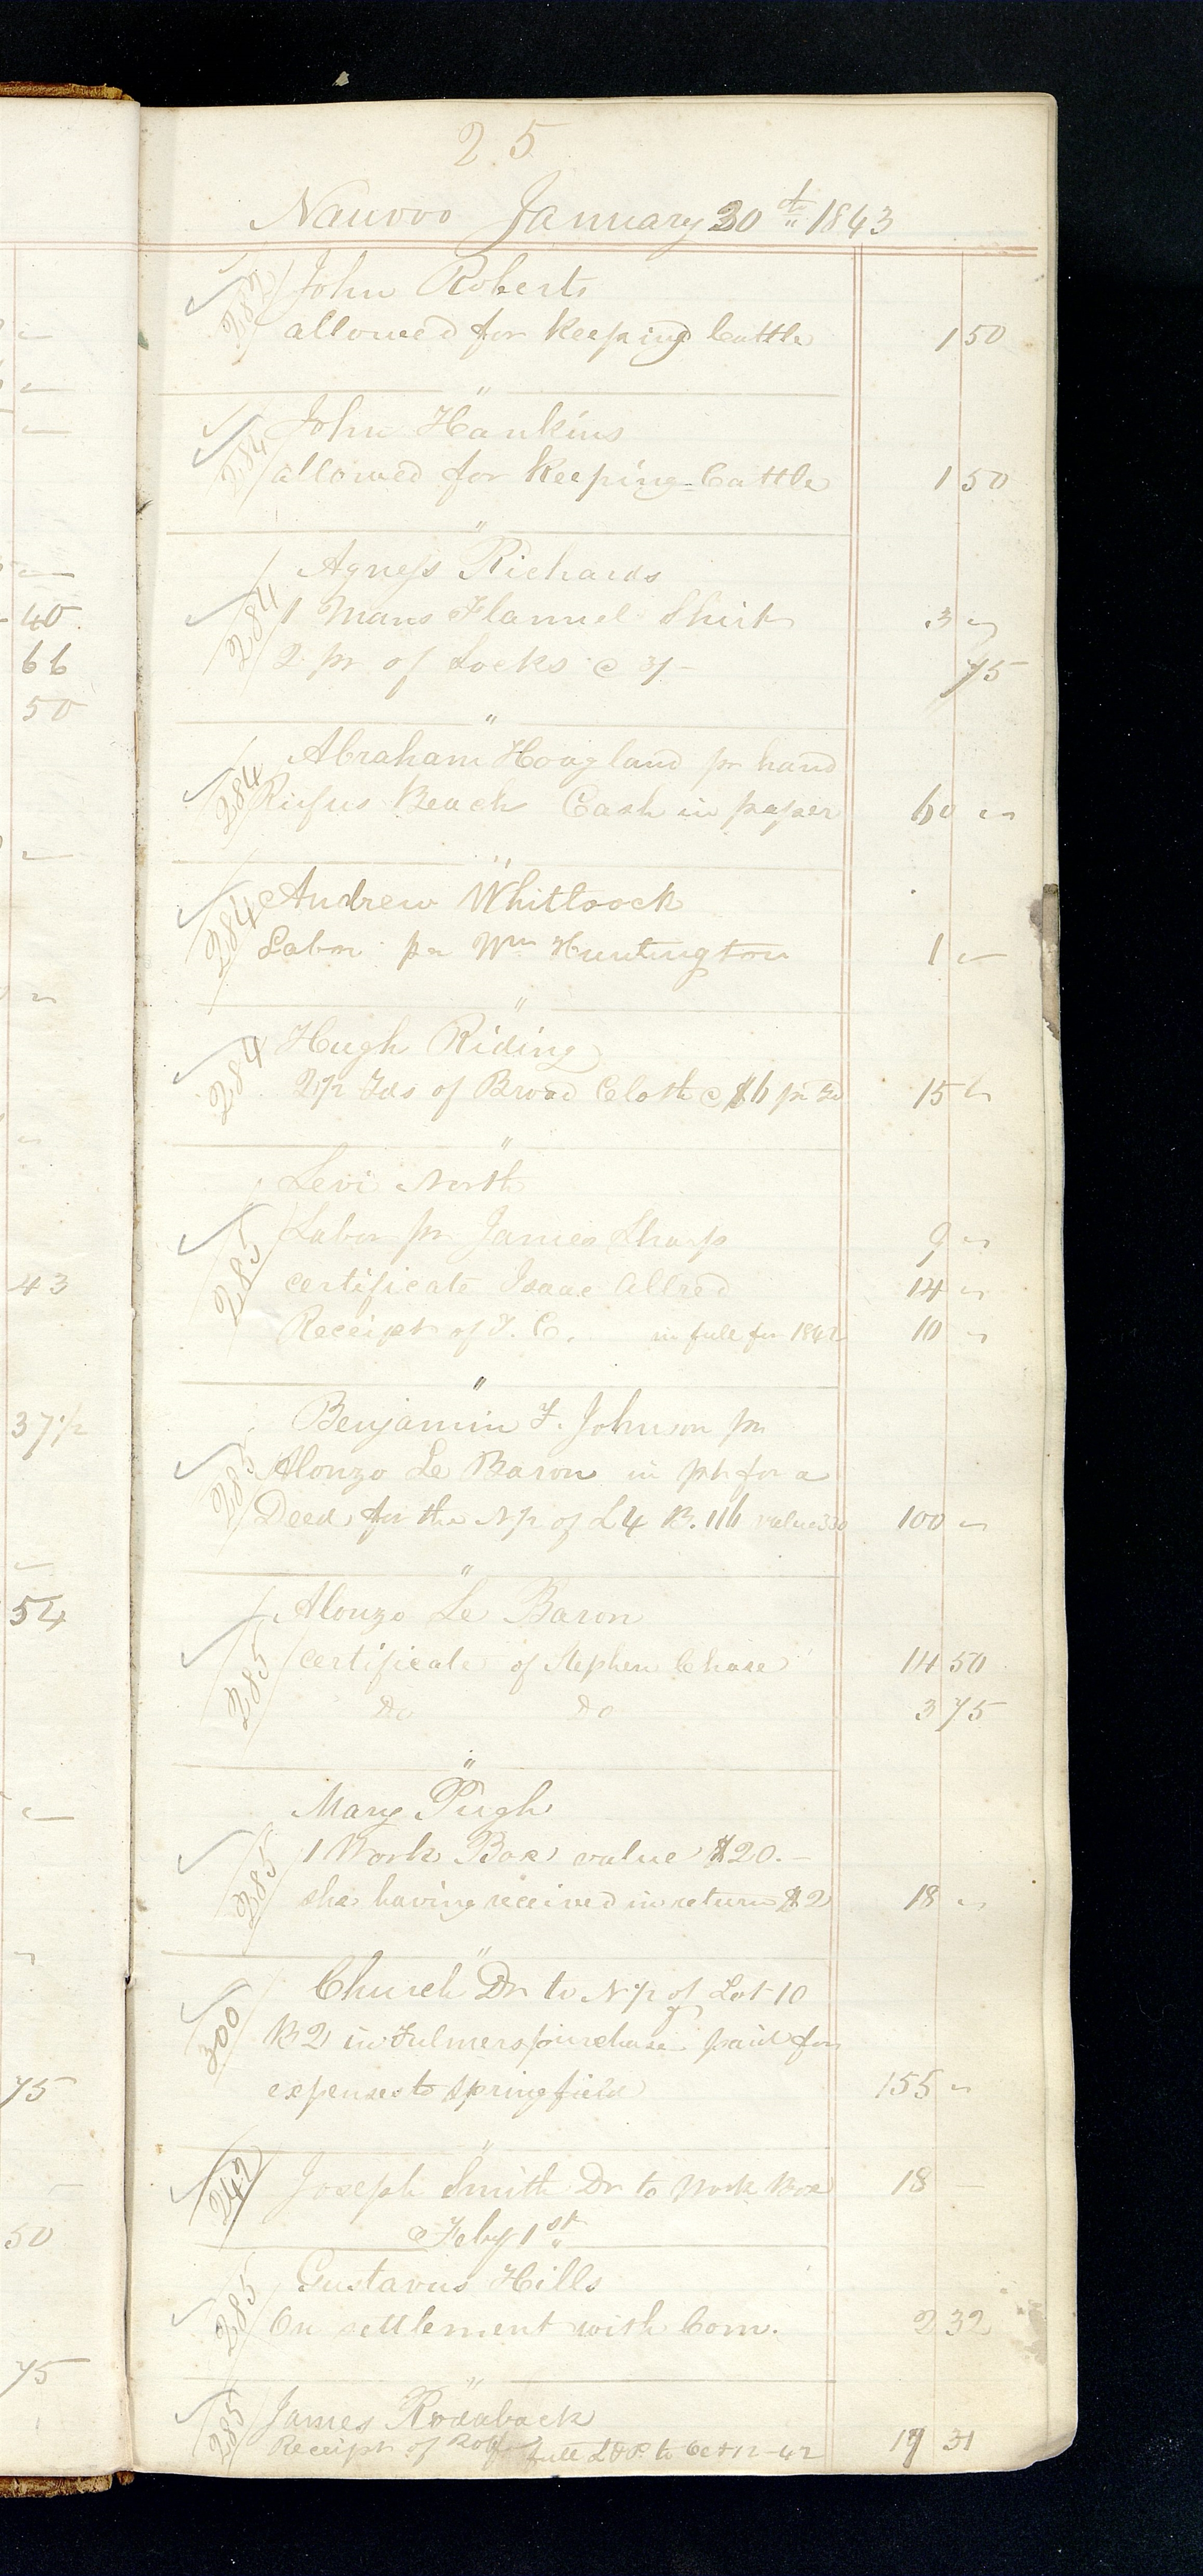 25
Nauvoo January 30th 1843
283 John Roberts
allowed for Keeping Cattle 1 50
"
284 John Hankins
allowed for Keeping Cattle 1 50
"
284 Agness Richards
1 Mans Flannel Shirt 3 "
2 pr of Socks @ 3/- 75
"
284 Abraham Hoagland pr hand
Rufus Beach Cash in paper 60 "
"
284 Andrew Whitlock
Labor pr Wm Huntington 1 "
"
284 Hugh Riding
2 1/2 Yds of Broad Cloth @ $6 pr Yd 15 "
"
285 Levi North
Labor pr James Sharp 9 "
certificate Isaac Allred 14 "
Receipt of T. C. in full for 1842 10 "
"
285 Benjamin F. Johnson pr
Alonzo Le Baron in pt for a
Deed for the N 1/2 of L 4 B. 116 value 330 100 "
"
285 Alonzo Le Baron
certificate of Stephen Chase 14 50
Do Do 3 75
"
285 Mary Pugh
1 Work Box value $20.-
she having received in return $2 18 "
"
300 Church Dr to N 1/2 of Lot 10
B 2 in Fulmers purchase paid for
expenses to Springfield 155 "
"
242 Joseph Smith Dr to Work Box 18 -
Feby 1st
285 Gustavus Hills
On settlement with Com. 2 32
"
285 James Rodaback
Receipt of full L&P to Oct 12-42 31
40
66
50
43
37 1/2
54
75
50
75